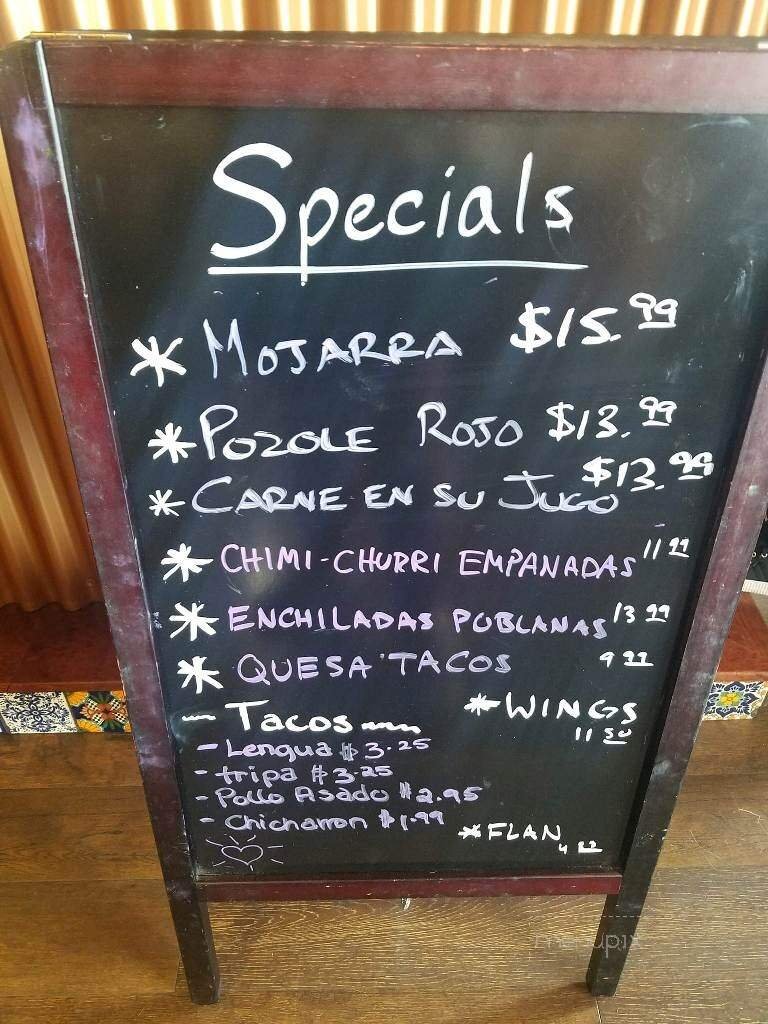 Specials
* MOJARRA $15.99
* POZOLE ROJO $13.99
* CARNE EN SU JUGO $13.99
* CHIMI-CHURRI EMPANADAS 11 99
* ENCHILADAS POBLANAS 13 99
* QUESA TACOS 9 99
Tacos
* WINGS
11 50
- Lengua $3.25
- tripa $3.25
- Pollo Asado $2.95
- Chicharron $1.99
* FLAN
menupix